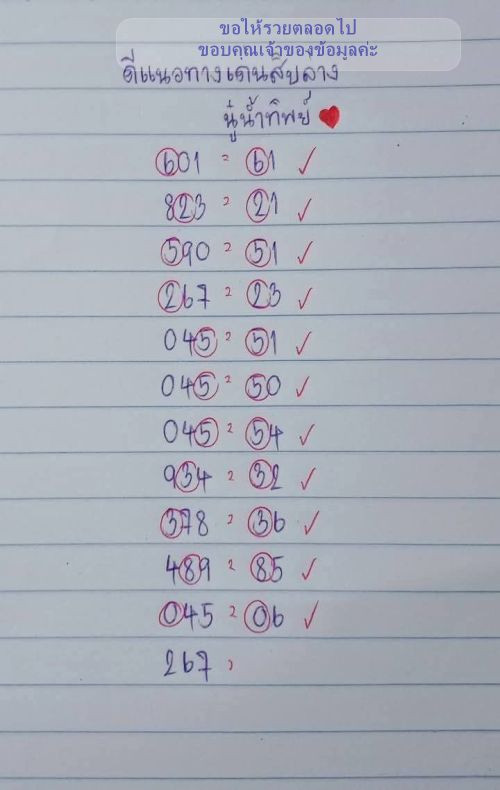 ขอให้รวยตลอดไป
ขอบคุณเจ้าของข้อมูลค่ะ
ดีแนวทางเด่นสิบล่าง
นู๋น้ำทิพย์ ❤
601 = 61 ✓
823 = 21 ✓
590 = 51 ✓
267 = 23 ✓
045 = 51 ✓
045 = 50 ✓
045 = 54 ✓
934 = 32 ✓
378 = 36 ✓
489 = 85 ✓
045 = 06 ✓
267 =